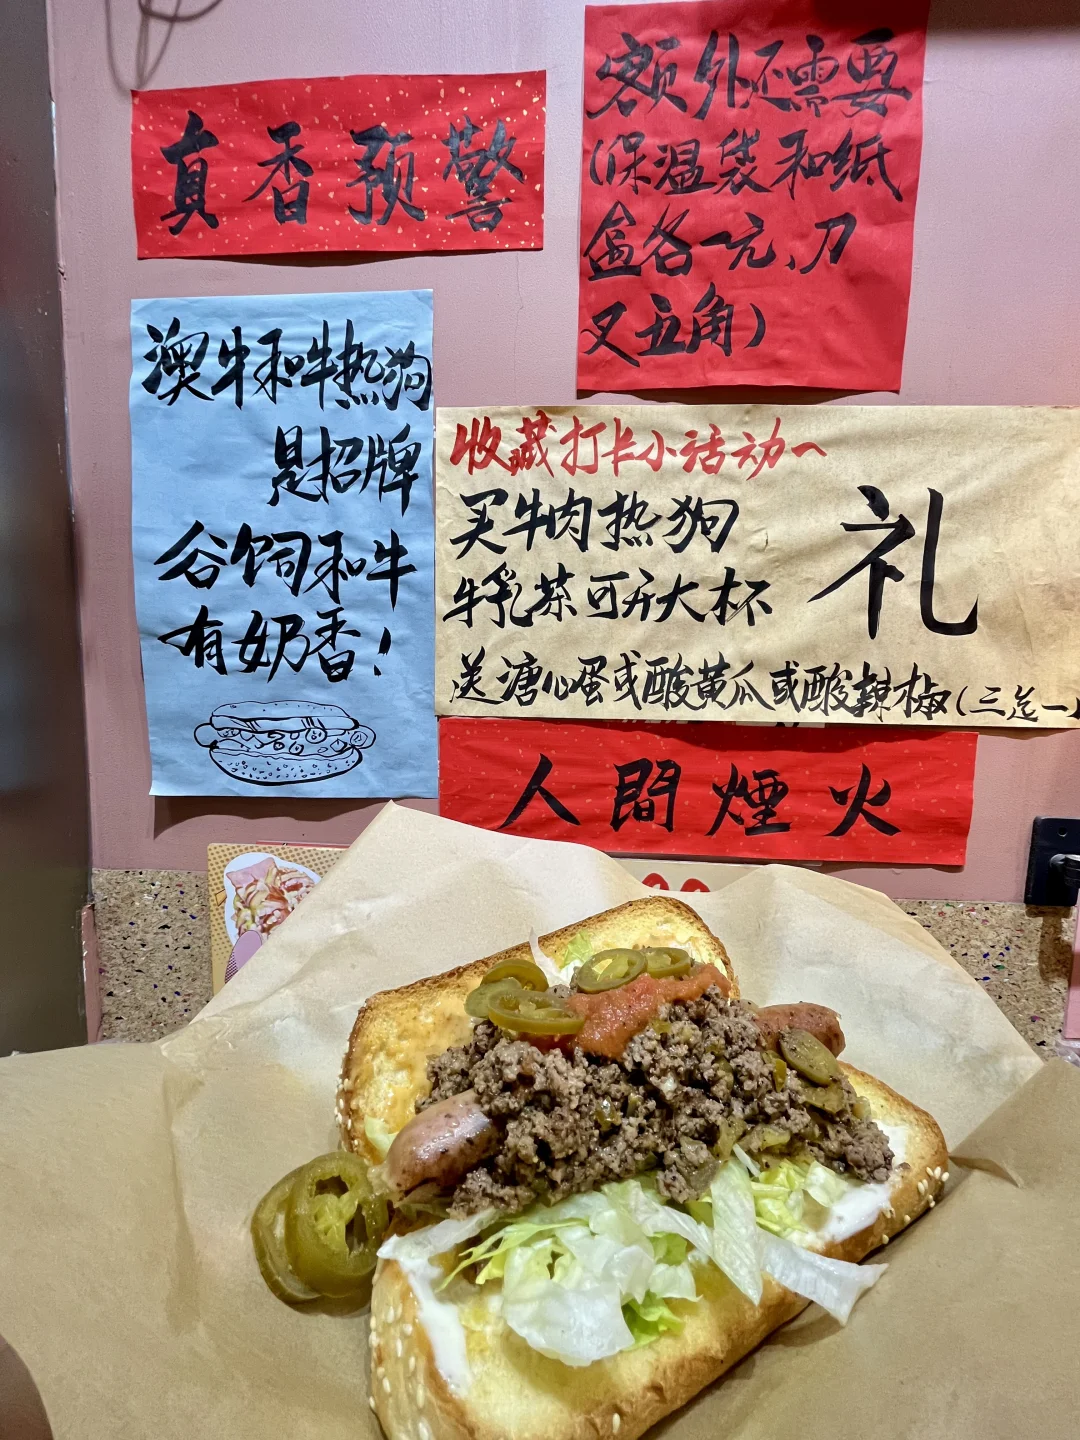 真香预警
额外还需要
(保温袋和纸
盒各一元、刀
叉五角)
澳牛和牛热狗
是招牌
谷饲和牛
有奶香!
收藏打卡小活动~
买牛肉热狗
牛乳茶可升大杯
礼
送溏心蛋或酸黄瓜或酸辣椒(三选一
人間煙火